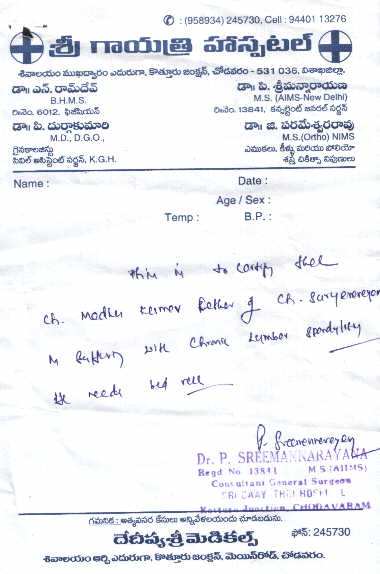 ✆ : (958934) 245730, Cell : 94401 13276
శ్రీ గాయత్రి హాస్పటల్
శివాలయం ముఖద్వారం ఎదురుగా, కొత్తూరు జంక్షన్, చోడవరం - 531 036, విశాఖజిల్లా.
డా॥ ఎన్. రామ్‌దేవ్
B.H.M.S.
రి.నెం. 6012, ఫిజీషియన్
డా॥ పి. శ్రీమన్నారాయణ
M.S. (AIMS-New Delhi)
రి.నెం. 13841, కన్సల్టెంట్ జనరల్ సర్జన్
డా॥ పి. దుర్గాకుమారి
M.D., D.G.O.,
గైనకాలజిస్టు
సివిల్ అసిస్టెంట్ సర్జన్, K.G.H.
డా॥ జి. పరమేశ్వరరావు
M.S.(Ortho) NIMS
ఎముకలు, కీళ్ళు మరియు పోలియో
శస్త్ర చికిత్సా నిపుణులు
Name :
Date :
Age / Sex :
Temp : B.P. :
This is to certify that
Ch. Madhu Kumar Father of Ch. Suryanarayana
is suffering with Chronic Lumbar Spondylitis
He needs bed rest
P. Sreemannarayana
Dr. P. SREEMANNARAYANA
Regd No. 13841 M S (AIIMS)
Consultant General Surgeon
SRI GAYATHRI HOSPITAL
Kotturu Junction, CHODAVARAM
గమనిక : అత్యవసర కేసులు అన్నివేళలయందు చూడబడును.
దేదీప్యశ్రీ మెడికల్స్ ఫోన్: 245730
శివాలయం ఆర్చి ఎదురుగా, కొత్తూరు జంక్షన్, మెయిన్‌రోడ్, చోడవరం.